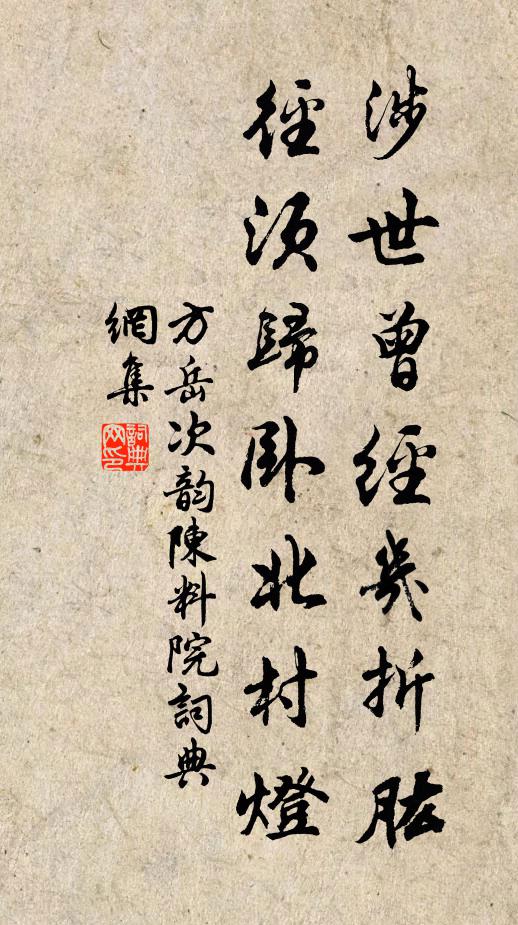 涉世曾經幾折肱
徑須歸臥北村燈
方岳次韵陳料院詞典
網集
詞典網印